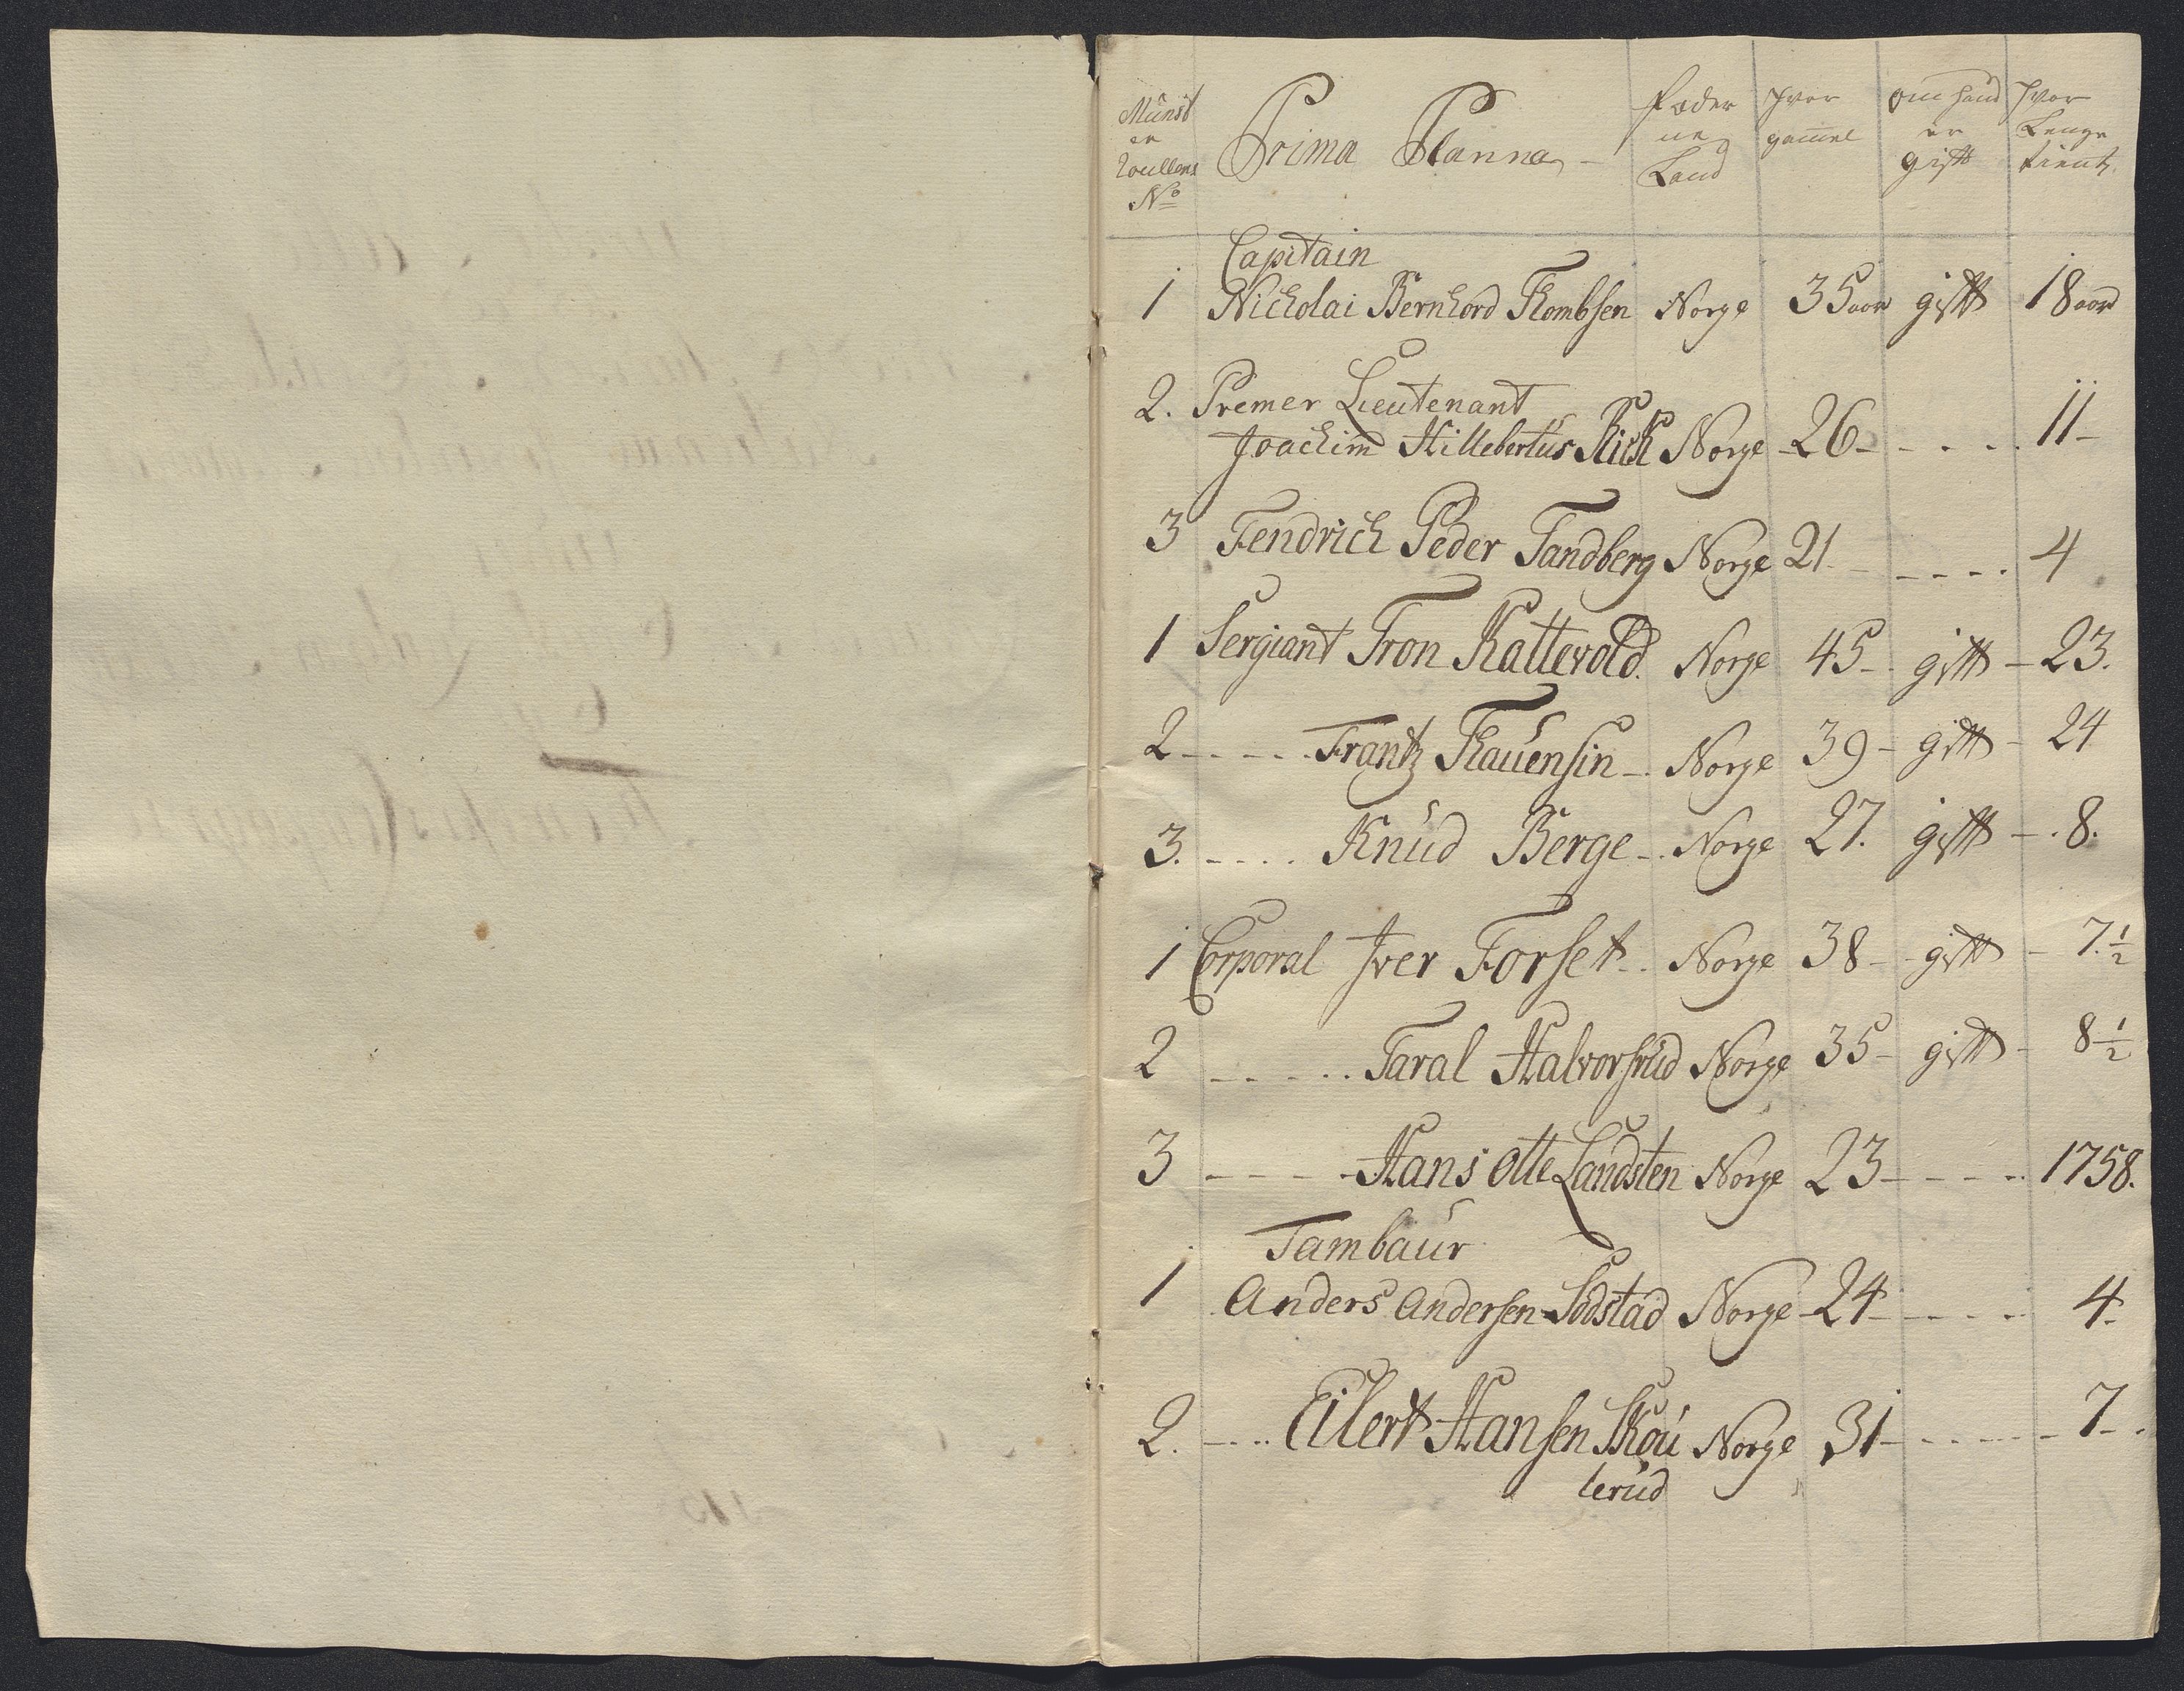 Münst er Roullens No Prima Planna Føder ne Land Hvor gammel om hand er gift Hvor Lenge tient
Capitain
1 Nicholai Bernhord Thombsen Norge 35 aar gift 18 aar
2. Premer Lieutenant
Joachim Hillebertus Rick Norge 26 - - - - 11 -
3 Fendrich Peder Tandberg Norge 21 - - - - 4
1 Sergiant Tron Kattevold Norge 45 - gift - 23.
2 - - - - Frantz Thauensin - Norge 39 - gift - 24
3. - - - - Knud Berge - Norge 27. gift - 8.
1 Corporal Iver Forset - Norge 38 - gift - 7 1/2
2 - - - - Taral Halvorsrud Norge 35 - gift - 8 1/2
3 - - - - Hans Otte Landsten Norge 23 - - - - 1758.
Tambaur
1 Anders Andersen Sodstad Norge - 24 - - - - 4 -
2. - - - Eilert Hansen Skou Norge 31 - - - - - 7 -
terud